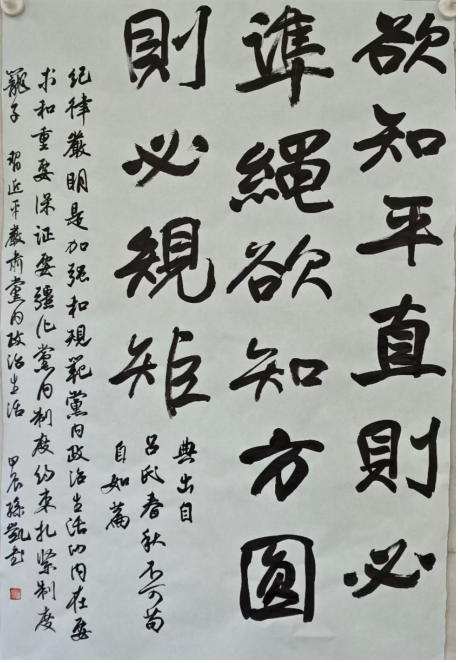 欲知平直則必
準繩欲知方圓
則必規矩
典出自
吕氏春秋不可苟
自如篇
紀律嚴明是加强和規範黨内政治生活的内在要
求和重要保证要疆化黨内制度约束扎紧制度
籠子 習近平嚴肅黨内政治生活 甲辰孫凱书